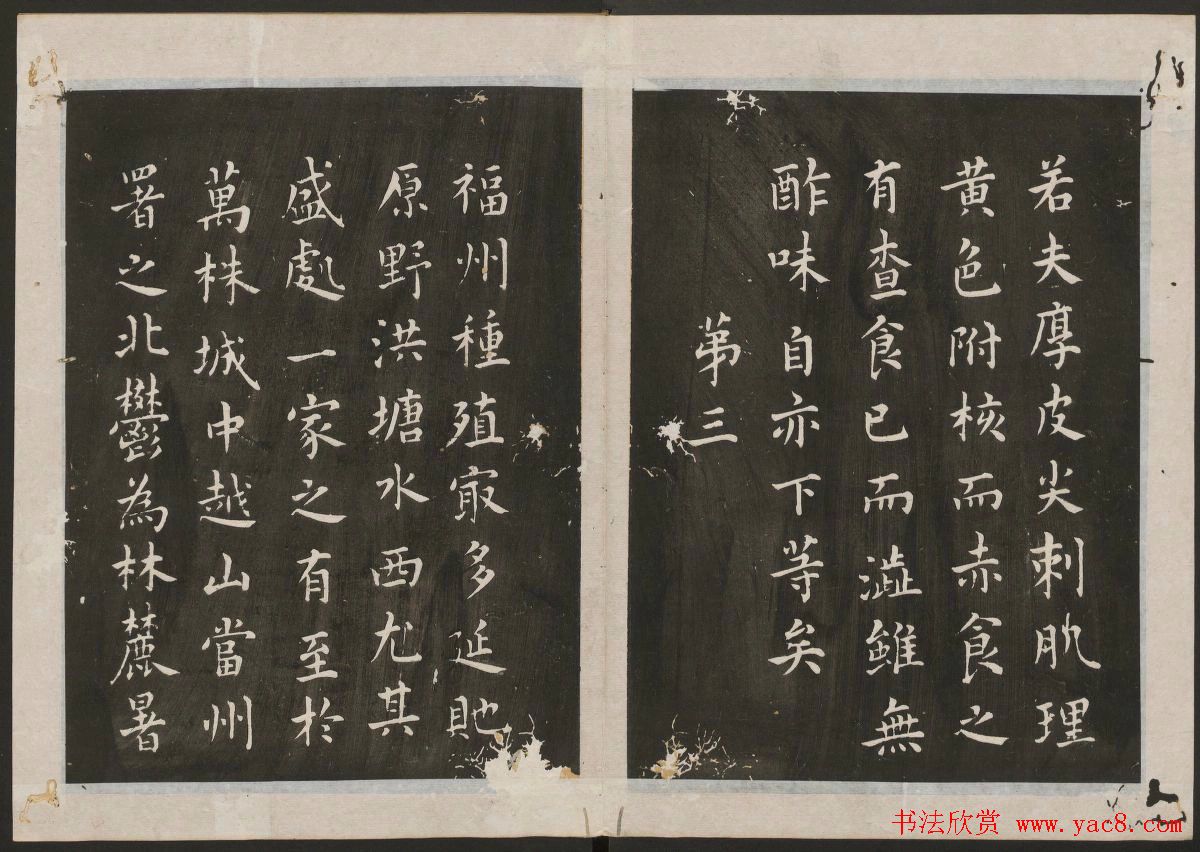 若夫厚皮尖刺肌理
黄色附核而赤食之
有查食已而澁雖無
酢味自亦下等矣
苐三
福州種殖㝡多延貤
原野洪塘水西尤其
盛處一家之有至於
萬株城中越山當州
署之北鬱為林麓暑
书法欣赏 www.yac8.com